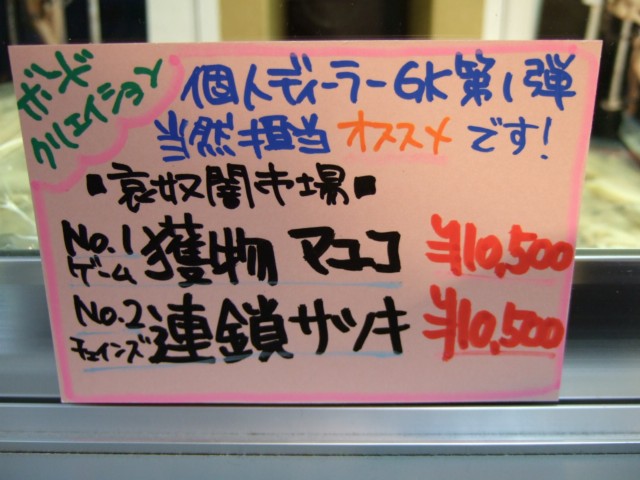 ボンド
クリエイション
個人ディーラーGK第1弾
当然担当オススメです!
■哀奴闇市場■
No.1 獲物 マユコ ¥10,500
ゲーム
No.2 連鎖 サツキ ¥10,500
チェインズ